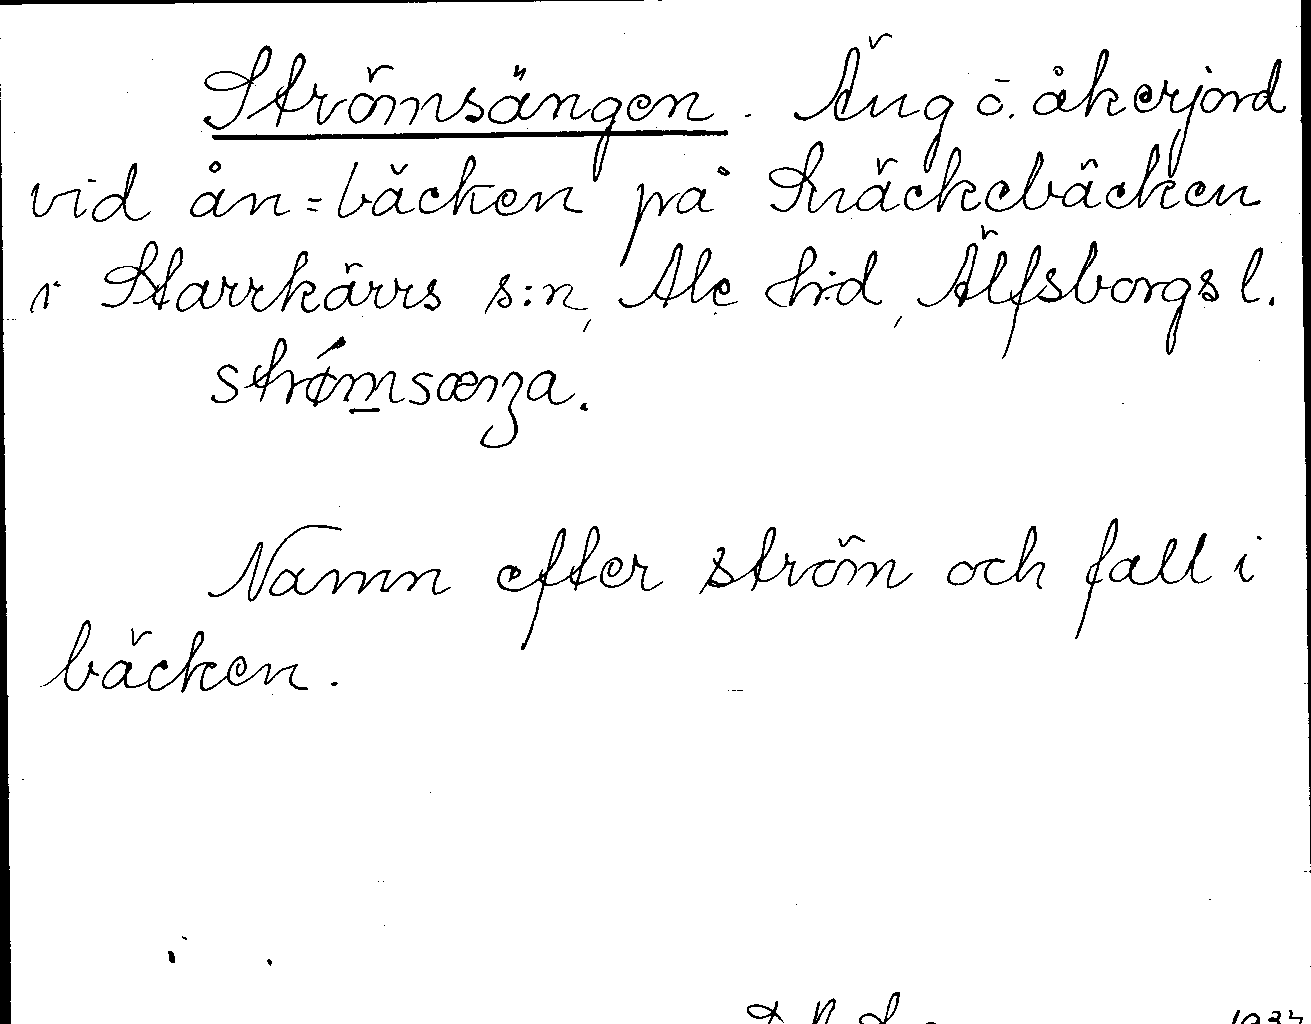 Strömsängen. Äng o. åkerjord
vid ån=bäcken på Knäckebäcken
i Starrkärrs s:n, Ale hrd, Älfsborgs l.
strǿmsœŋa.
Namn efter ström och fall i
bäcken.